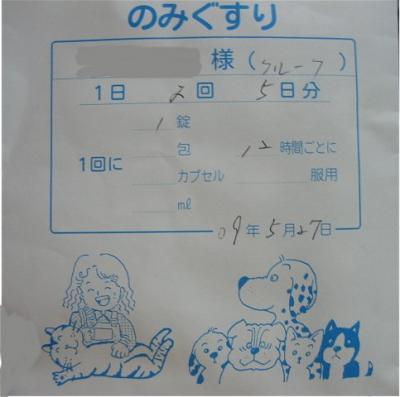 のみぐすり
様(クループ)
1日 2回 5日分
1錠
1回に 包 12時間ごとに
カプセル 服用
ml
09年5月27日